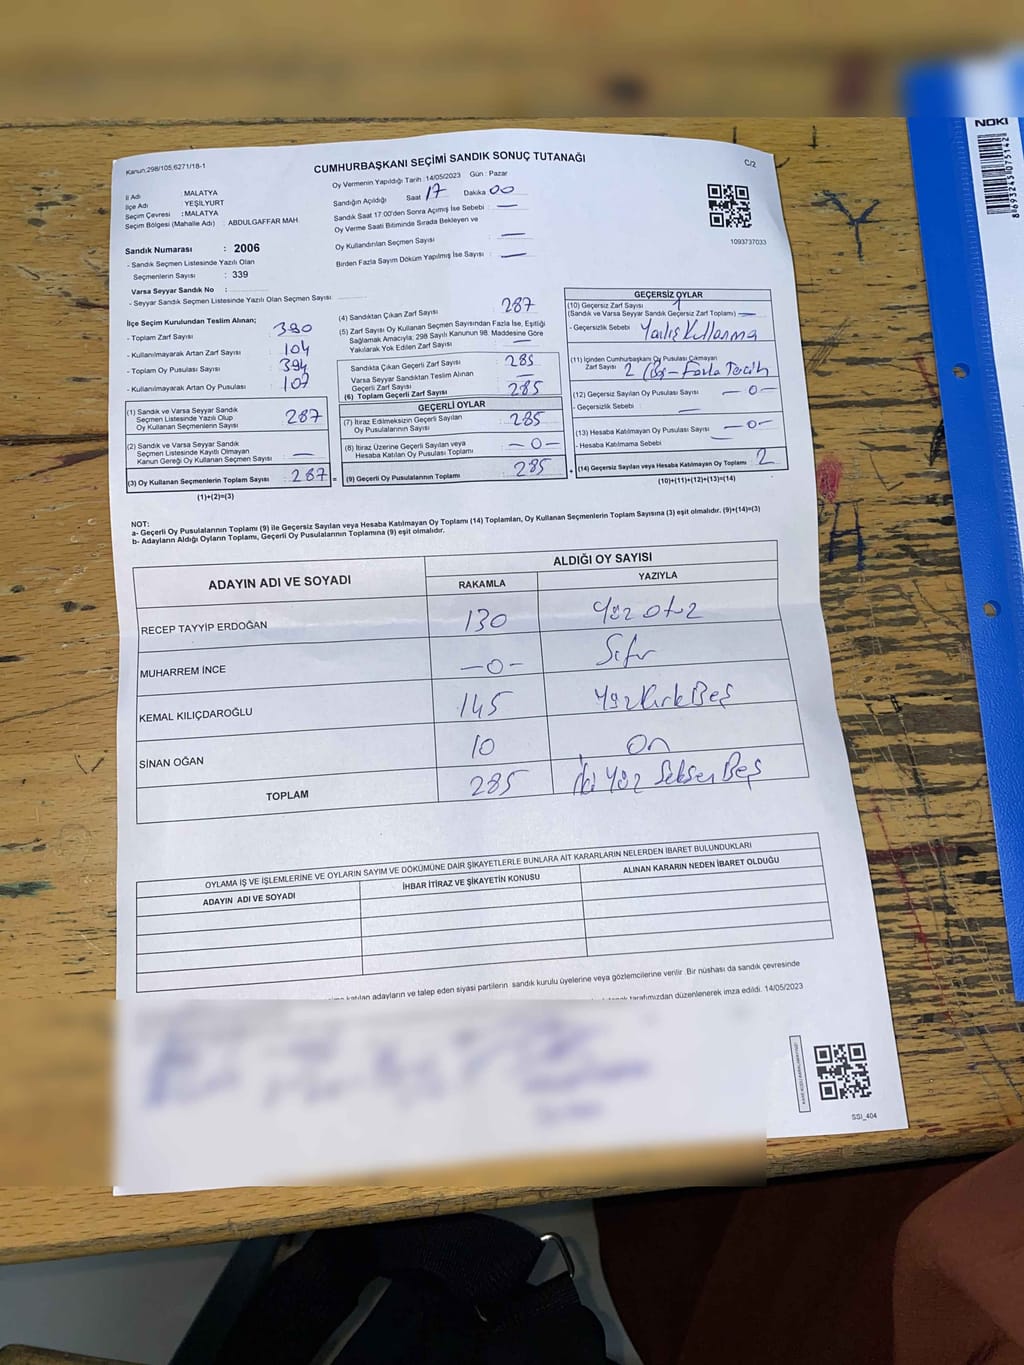 Kanun:298/105,6271/18-1
C/2
CUMHURBAŞKANI SEÇİMİ SANDIK SONUÇ TUTANAĞI
İl Adı : MALATYA
İlçe Adı : YEŞİLYURT
Seçim Çevresi : MALATYA
Seçim Bölgesi (Mahalle Adı) : ABDULGAFFAR MAH.
Oy Vermenin Yapıldığı Tarih : 14/05/2023 Gün : Pazar
Sandığın Açıldığı Saat 17 Dakika 00
Sandık Saat 17:00'den Sonra Açımış İse Sebebi : —
Oy Verme Saati Bitiminde Sırada Bekleyen ve
Oy Kullandırılan Seçmen Sayısı : —
Birden Fazla Sayım Döküm Yapılmış İse Sayısı : —
1093737033
Sandık Numarası : 2006
- Sandık Seçmen Listesinde Yazılı Olan
Seçmenlerin Sayısı : 339
Varsa Seyyar Sandık No :
- Seyyar Sandık Listesinde Yazılı Olan Seçmen Sayısı:
İlçe Seçim Kurulundan Teslim Alınan;
- Toplam Zarf Sayısı : 390
- Kullanılmayarak Artan Zarf Sayısı : 104
- Toplam Oy Pusulası Sayısı : 394
- Kullanılmayarak Artan Oy Pusulası : 107
(1) Sandık ve Varsa Seyyar Sandık
Seçmen Listesinde Yazılı Olup
Oy Kullanan Seçmenlerin Sayısı : 287
(2) Sandık ve Varsa Seyyar Sandık
Seçmen Listesinde Kayıtlı Olmayan
Kanun Gereği Oy Kullanan Seçmen Sayısı : —
(3) Oy Kullanan Seçmenlerin Toplam Sayısı : 287 =
(1)+(2)=(3)
(4) Sandıktan Çıkan Zarf Sayısı : 287
(5) Zarf Sayısı Oy Kullanan Seçmen Sayısından Fazla İse, Eşitliği
Sağlamak Amacıyla; 298 Sayılı Kanunun 98. Maddesine Göre
Yakılarak Yok Edilen Zarf Sayısı : —
Sandıkta Çıkan Geçerli Zarf Sayısı : 285
Varsa Seyyar Sandıktan Teslim Alınan
Geçerli Zarf Sayısı : —
(6) Toplam Geçerli Zarf Sayısı : 285
GEÇERLİ OYLAR
(7) İtiraz Edilmeksizin Geçerli Sayılan
Oy Pusulalarının Sayısı : 285
(8) İtiraz Üzerine Geçerli Sayılan veya
Hesaba Katılan Oy Pusulası Toplamı : —0—
(9) Geçerli Oy Pusulalarının Toplamı : 285 +
GEÇERSİZ OYLAR
(10) Geçersiz Zarf Sayısı
(Sandık ve Varsa Seyyar Sandık Geçersiz Zarf Toplamı) : —
- Geçersizlik Sebebi : Yanlış Kullanma
(11) İçinden Cumhurbaşkanı Oy Pusulası Çıkmayan
Zarf Sayısı : 2 - Fazla Tercih
(12) Geçersiz Sayılan Oy Pusulası Sayısı : —0—
- Geçersizlik Sebebi : —
(13) Hesaba Katılmayan Oy Pusulası Sayısı : —0—
- Hesaba Katılmama Sebebi : —
(14) Geçersiz Sayılan veya Hesaba Katılmayan Oy Toplamı : 2
(10)+(11)+(12)+(13)=(14)
NOT:
a- Geçerli Oy Pusulalarının Toplamı (9) ile Geçersiz Sayılan veya Hesaba Katılmayan Oy Toplamı (14) Toplamları, Oy Kullanan Seçmenlerin Toplam Sayısına (3) eşit olmalıdır. (9)+(14)=(3)
b- Adayların Aldığı Oyların Toplamı, Geçerli Oy Pusulalarının Toplamına (9) eşit olmalıdır.
ADAYIN ADI VE SOYADI ALDIĞI OY SAYISI
RAKAMLA YAZIYLA
RECEP TAYYİP ERDOĞAN 130 Yüz otuz
MUHARREM İNCE —0— Sıfır
KEMAL KILIÇDAROĞLU 145 Yüz Kırk Beş
SİNAN OĞAN 10 On
TOPLAM 285 İki Yüz Seksen Beş
OYLAMA İŞ VE İŞLEMLERİNE VE OYLARIN SAYIM VE DÖKÜMÜNE DAİR ŞİKAYETLERLE BUNLARA AİT KARARLARIN NELERDEN İBARET BULUNDUKLARI
ADAYIN ADI VE SOYADI İHBAR İTİRAZ VE ŞİKAYETİN KONUSU ALINAN KARARIN NEDEN İBARET OLDUĞU
katılan adayların ve talep eden siyasi partilerin sandık kurulu üyelerine veya gözlemcilerine verilir. Bir nüshası da sandık çevresinde
tarafımızdan düzenlenerek imza edildi. 14/05/2023
SSİ_404
NOKI
8 693245 075142